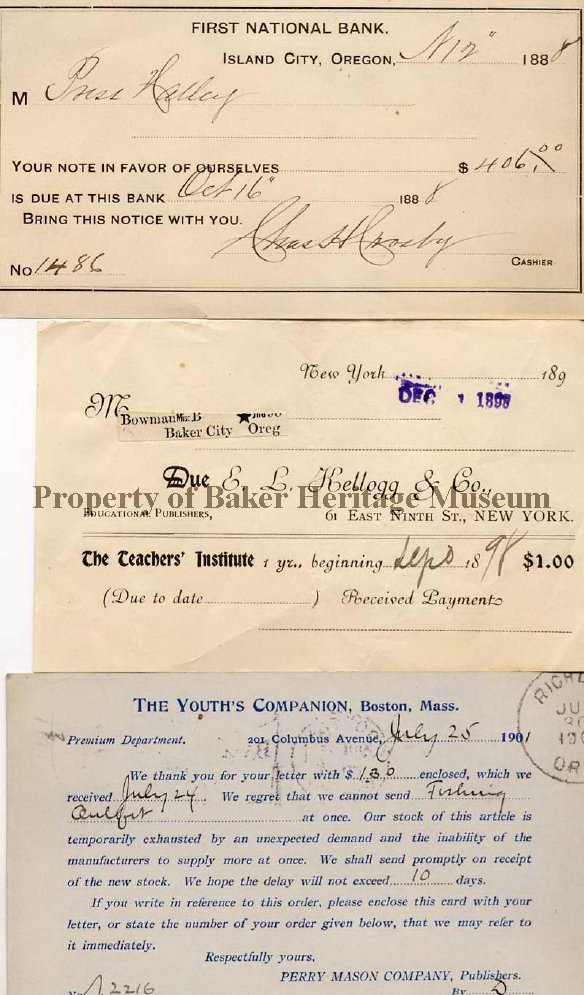 FIRST NATIONAL BANK.
ISLAND CITY, OREGON, 1888
M Pres Halley
YOUR NOTE IN FAVOR OF OURSELVES $406.00
IS DUE AT THIS BANK Oct 16" 1888
BRING THIS NOTICE WITH YOU.
Chas H Crosby
CASHIER
No 1486
New York DEC 1 1898 189
M
Bowman Mix B
Baker City Oreg
Due E. L. Kellogg & Co.,
Property of Baker Heritage Museum
EDUCATIONAL PUBLISHERS, 61 EAST NINTH ST., NEW YORK.
The Teachers' Institute 1 yr., beginning Sep 1898 $1.00
(Due to date ) Received Payment
THE YOUTH'S COMPANION, Boston, Mass.
Premium Department. 201 Columbus Avenue, July 25 1901
RICHL
JU
30
190
OR
We thank you for your letter with $1.30 enclosed, which we
received July 24. We regret that we cannot send Fishing
Outfit at once. Our stock of this article is
temporarily exhausted by an unexpected demand and the inability of the
manufacturers to supply more at once. We shall send promptly on receipt
of the new stock. We hope the delay will not exceed 10 days.
If you write in reference to this order, please enclose this card with your
letter, or state the number of your order given below, that we may refer to
it immediately.
Respectfully yours,
PERRY MASON COMPANY, Publishers.
No. 12216 By D